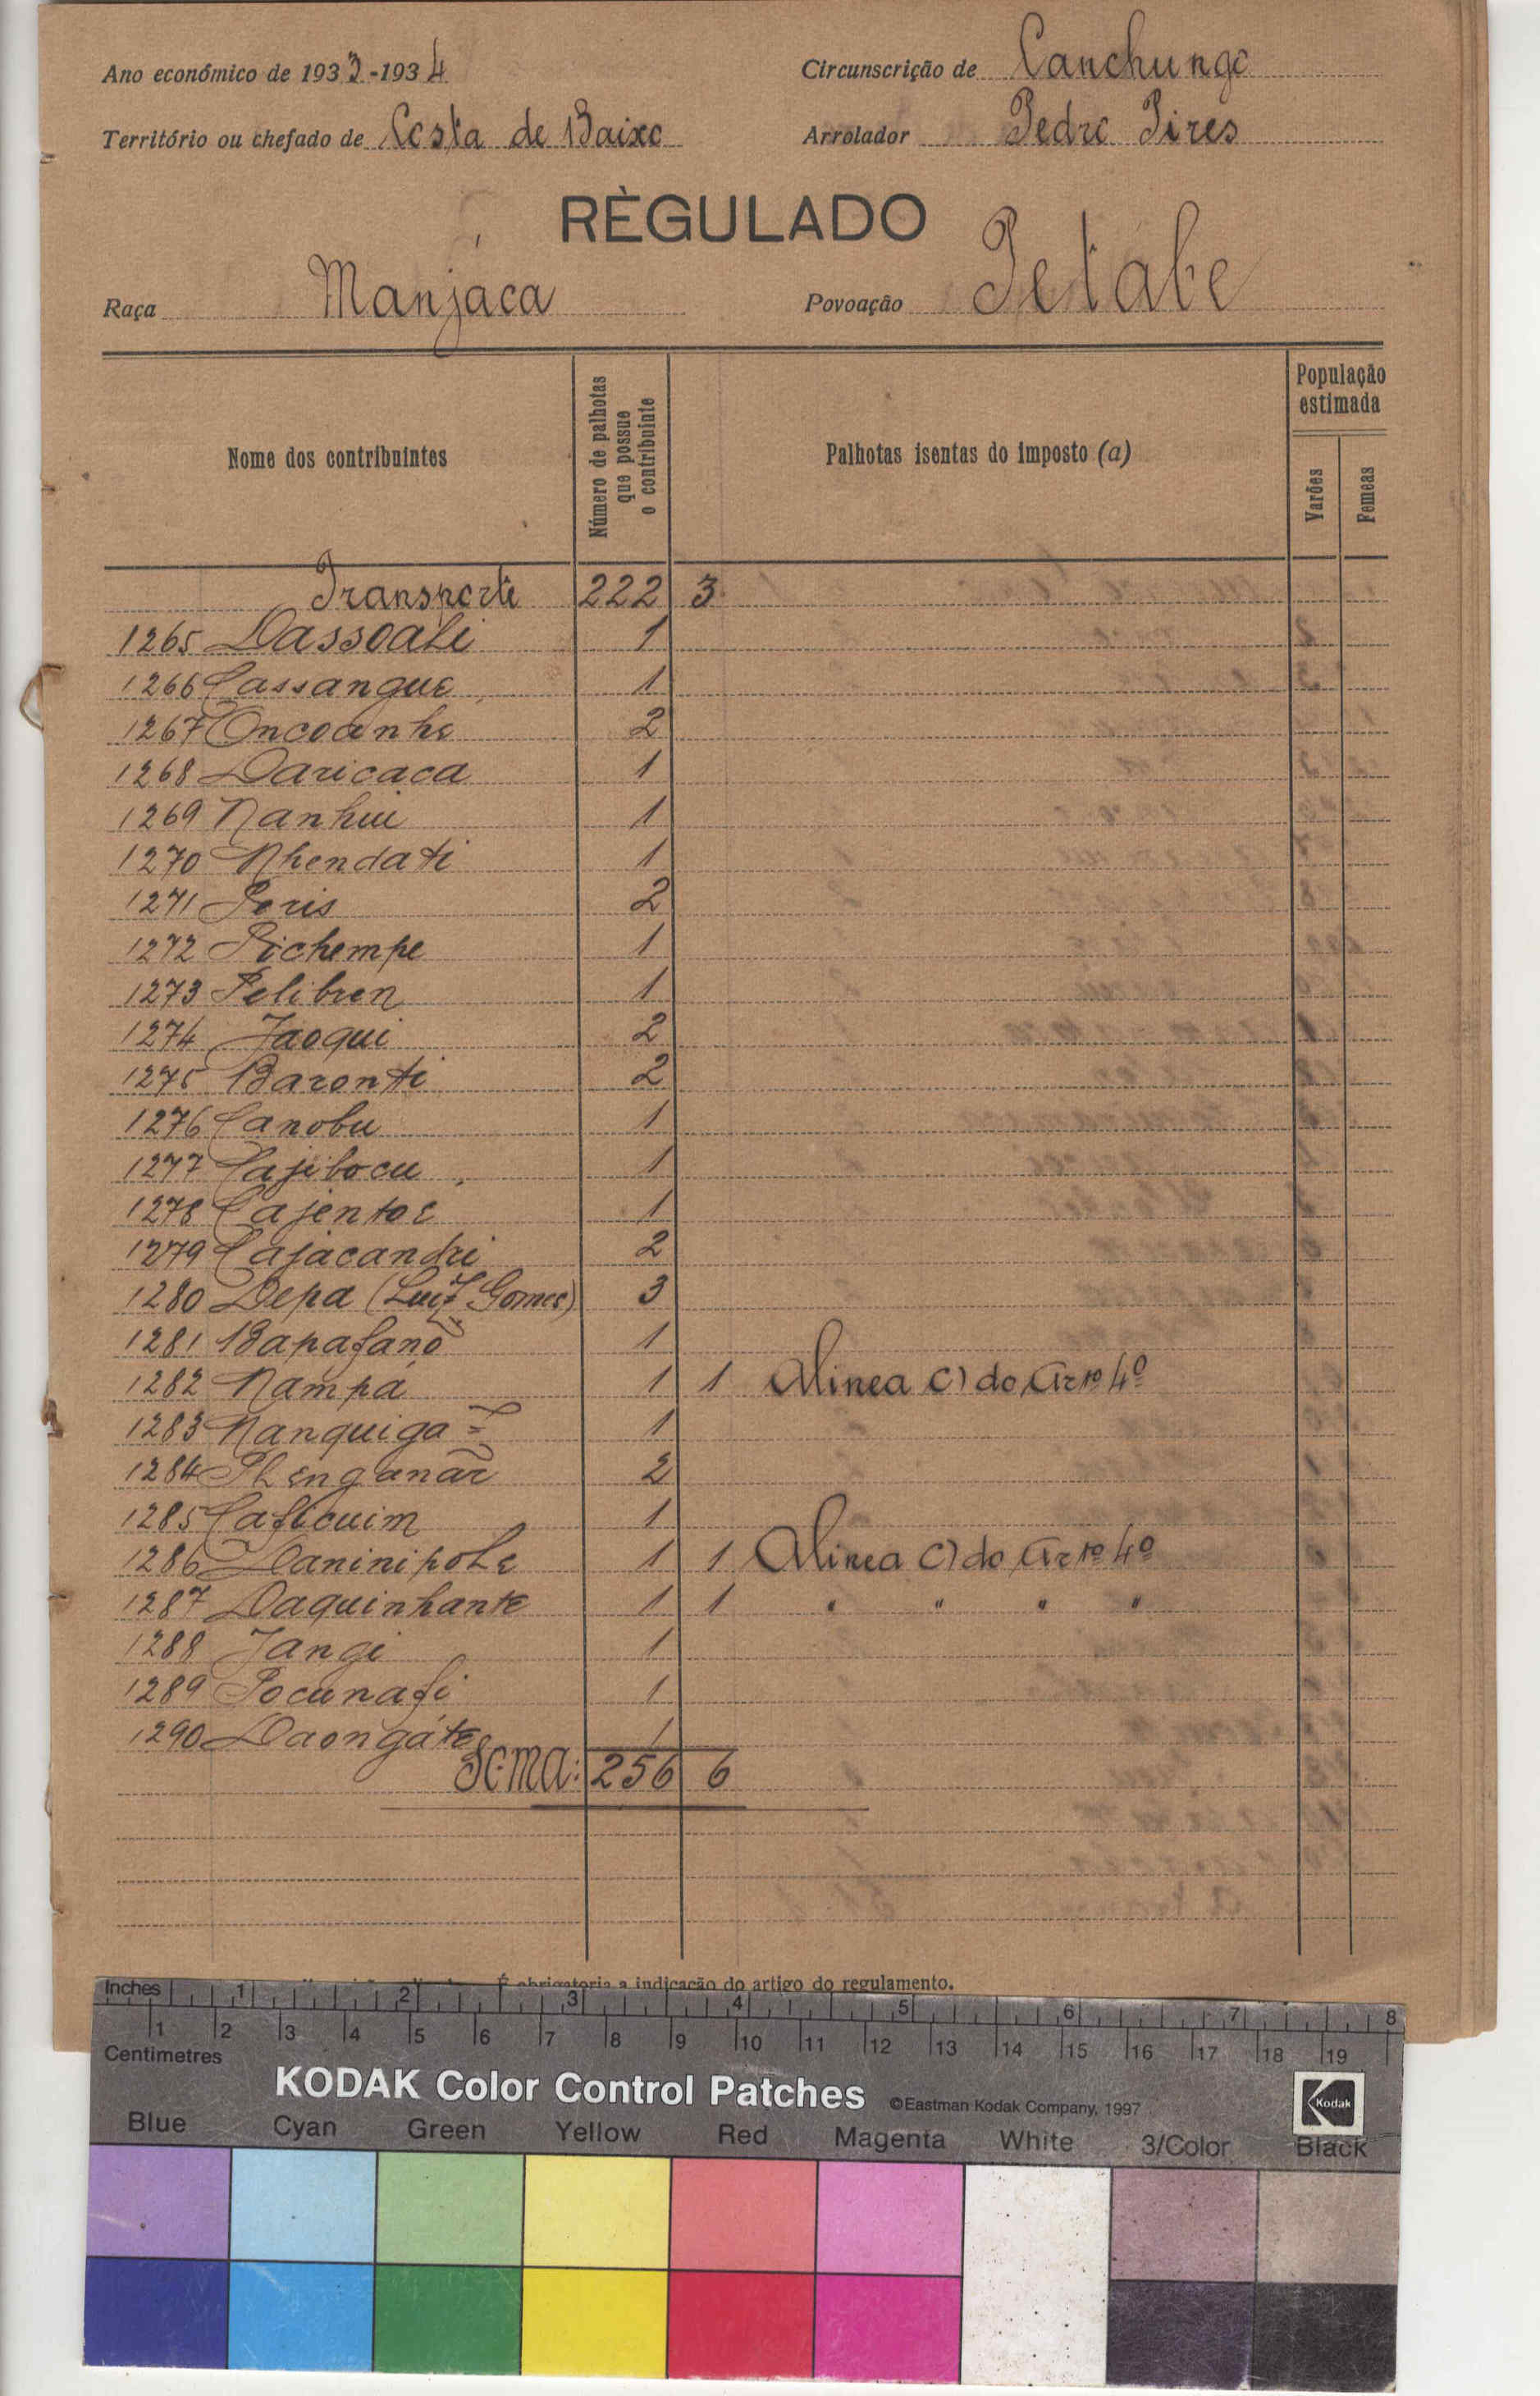 Ano económico de 1933-1934
Circunscrição de Canchungo
Território ou chefado de Costa de Baixo
Arrolador Pedro Pires
RÈGULADO
Raça Manjáca
Povoação Petábe
Nome dos contribuintes
Número de palhotas que possue o contribuinte
Palhotas isentas do imposto (a)
População estimada
Varões
Femeas
Transporte 222 3
1265 Dassoali 1
1266 Cassangue 1
1267 Oncoanhe 2
1268 Daricaca 1
1269 Nanhui 1
1270 Nhendati 1
1271 Peris 2
1272 Pichempe 1
1273 Pelibren 1
1274 Jaoqui 2
1275 Baronti 2
1276 Canobu 1
1277 Cajibocu 1
1278 Cajentoe 1
1279 Cajacandri 2
1280 Depa (Luiz Gomes) 3
1281 Bapafanõ 1
1282 Nampá 1 1 Alinea C) do Artº 4º
1283 Nanquiga 1
1284 Phenganãr 2
1285 Caficuim 1
1286 Daninipole 1 1 Alinea C) do Artº 4º
1287 Daquinhante 1 1 " " " "
1288 Jangi 1
1289 Pocunafi 1
1290 Daongáte 1
Soma: 256 6
É obrigatoria a indicação do artigo do regulamento.
Inches 1 2 3 4 5 6 7 8
1 2 3 4 5 6 7 8 9 10 11 12 13 14 15 16 17 18 19
Centimetres
KODAK Color Control Patches ©Eastman Kodak Company, 1997 Kodak
Blue Cyan Green Yellow Red Magenta White 3/Color Black